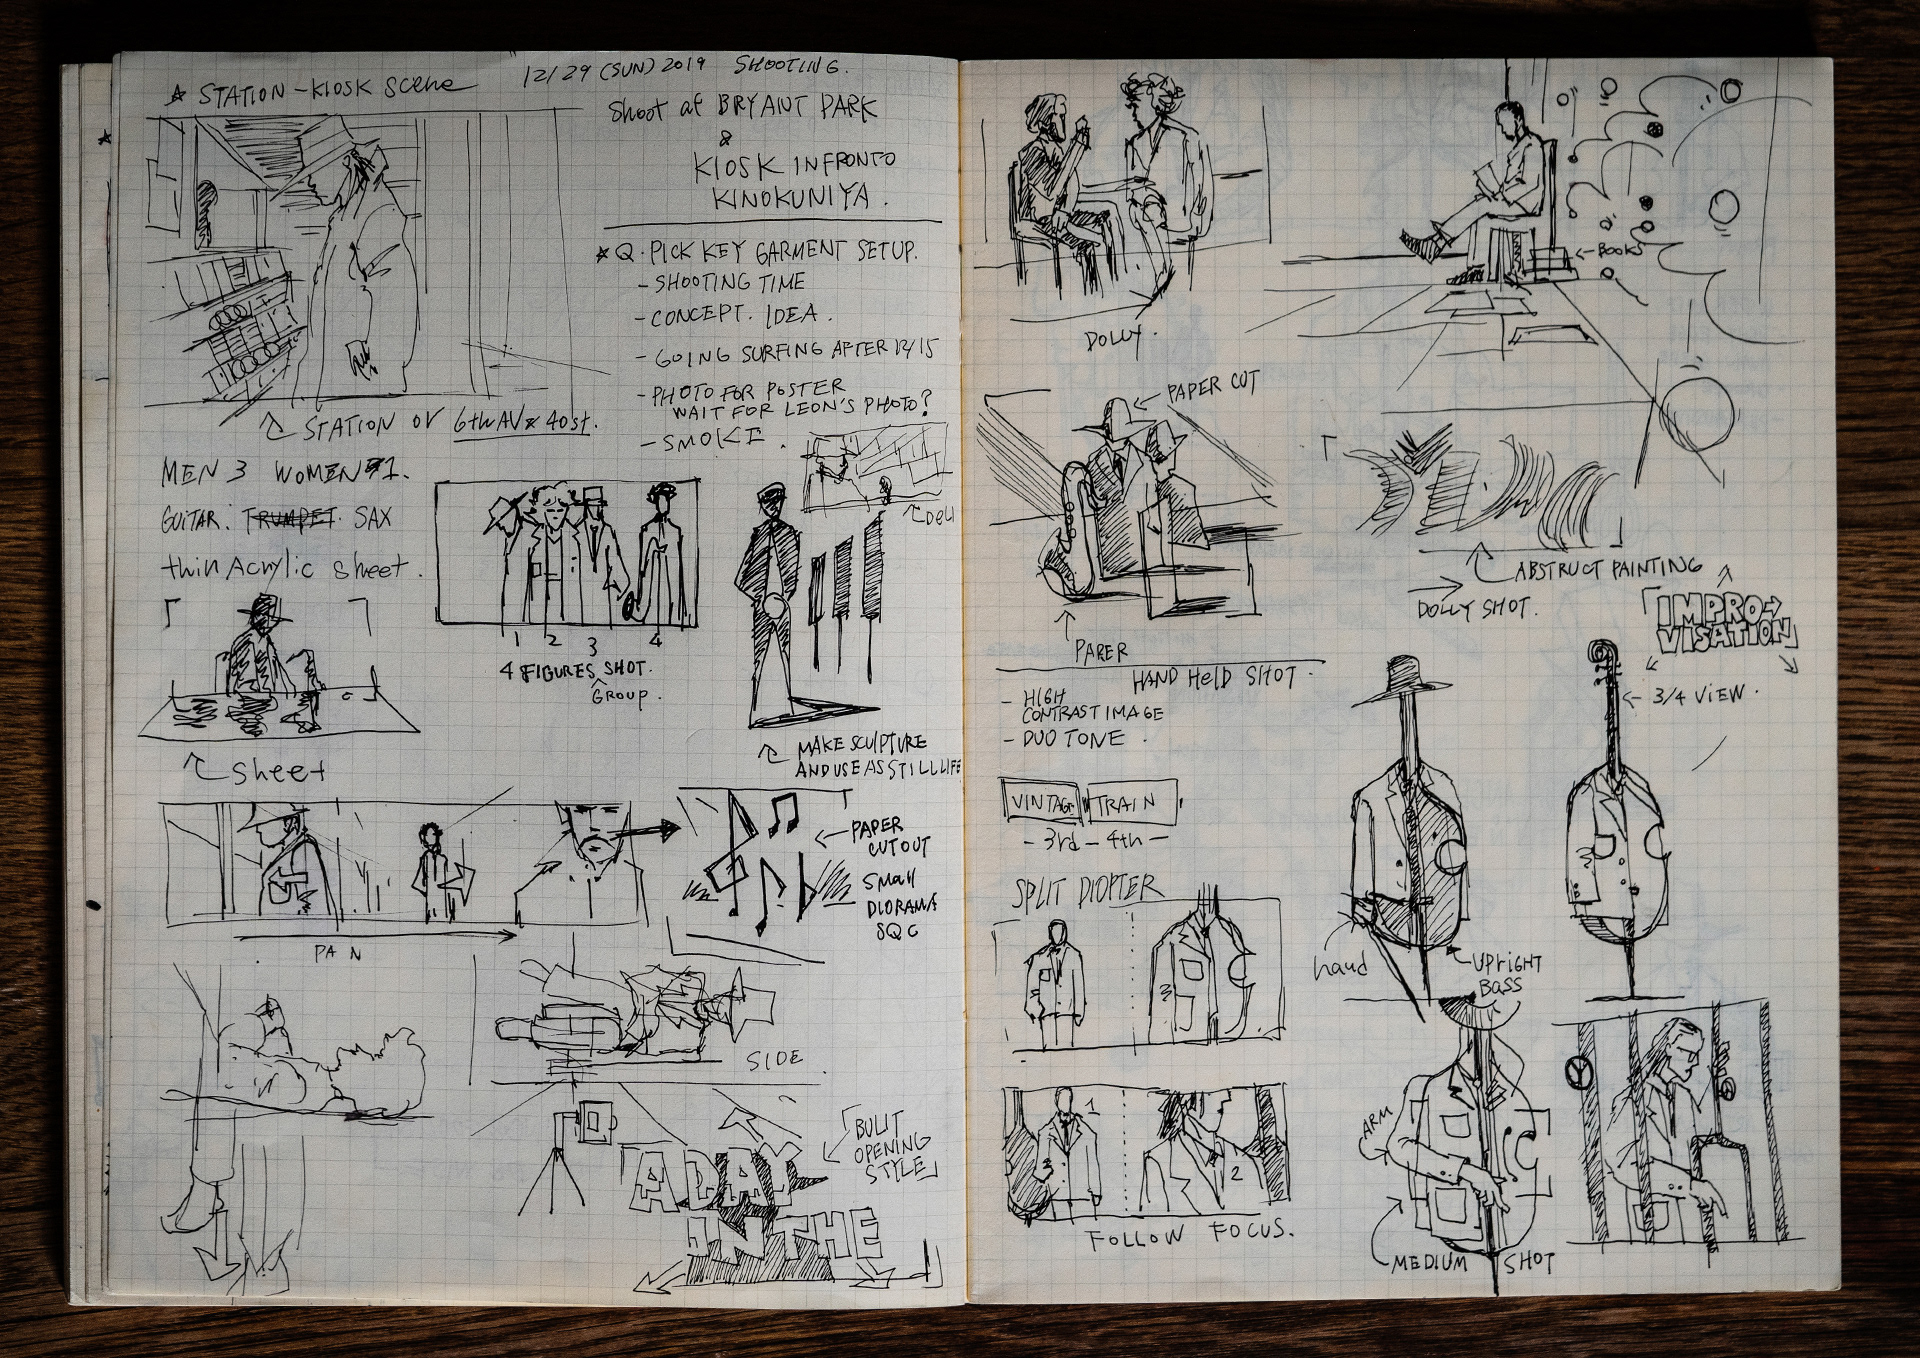 ☆ STATION-KIOSK Scene
12/29 (SUN) 2019 SHOOTING.
Shoot at BRYANT PARK
&
KIOSK INFRONTO
KINOKUNIYA.
☆Q. PICK KEY GARMENT SETUP.
- SHOOTING TIME
- CONCEPT. IDEA.
- GOING SURFING AFTER 12/15
- PHOTO FOR POSTER
WAIT FOR LEON'S PHOTO?
- SMOKE.
STATION OR 6th AV & 40st.
MEN 3 WOMEN 1.
GUITAR. TRUMPET. SAX
thin Acrylic sheet.
Sheet
1 2 3 4
4 FIGURES SHOT.
GROUP.
DELI
MAKE SCULPTURE
AND USE AS STILL LIFE
PAN
PAPER
CUTOUT
Small
DIORAMA
SQC
SIDE
BULIT
OPENING
STYLE
A DAY
IN THE
DOLLY.
BOOKS
PAPER CUT
PAPER
HAND HELD SHOT.
- HIGH
CONTRAST IMAGE
- DUO TONE.
VINTAGE TRAIN
- 3rd - 4th -
ABSTRUCT PAINTING
DOLLY SHOT.
IMPRO-
VISATION
3/4 VIEW.
SPLIT DIOPTER
hand
UPRIGHT
BASS
1
2
FOLLOW FOCUS.
ARM
MEDIUM SHOT